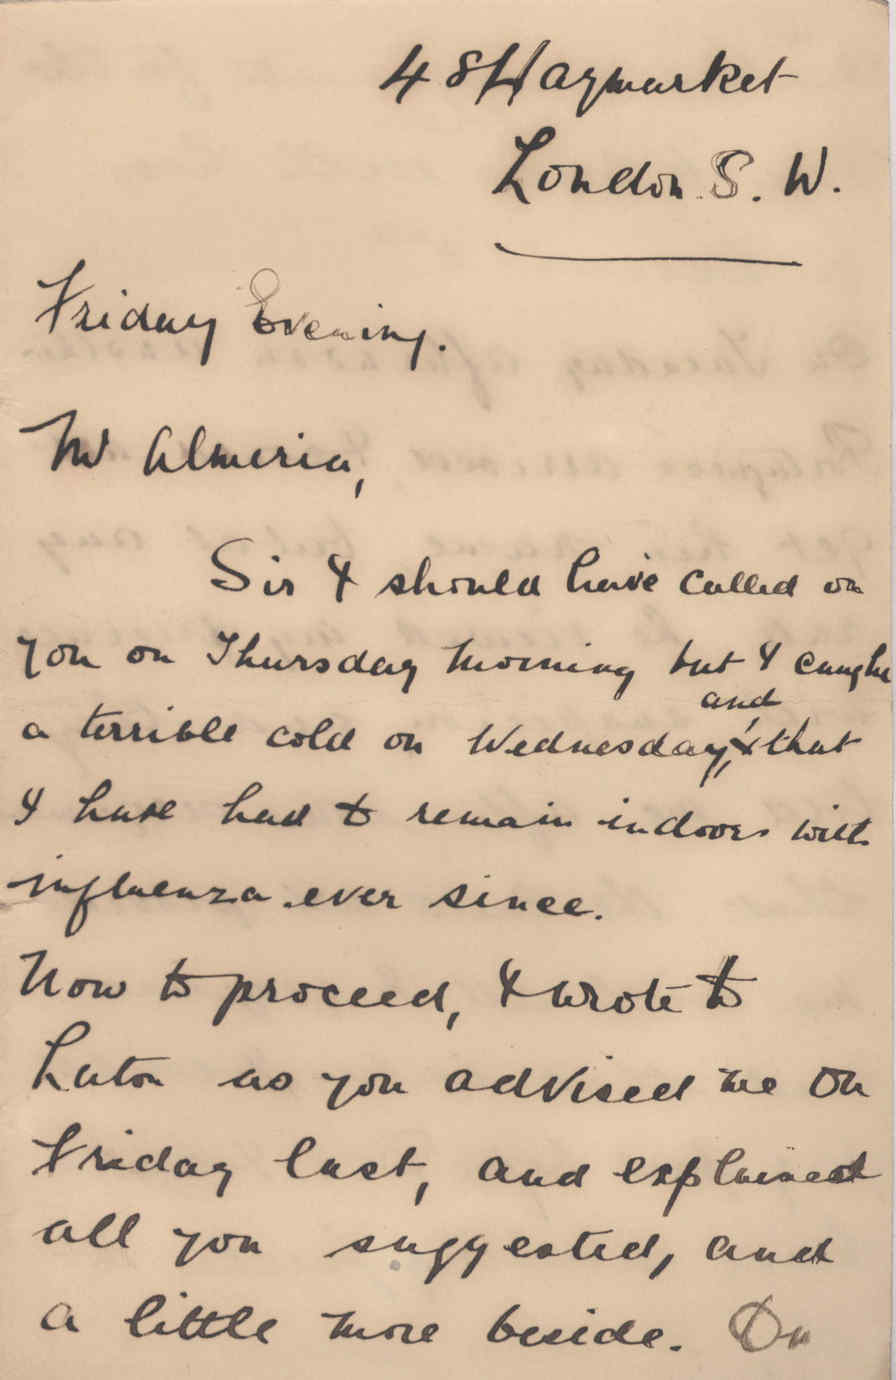 48 Haymarket
London. S. W.
Friday Evening.
Mr Almeria,
Sir I should have called on
you on Thursday morning but I caught
a terrible cold on Wednesday, and that
I have had to remain indoors with
influenza ever since.
Now to proceed, I wrote to
Luton as you advised me on
Friday last, and explained
all you suggested, and
a little more beside. On